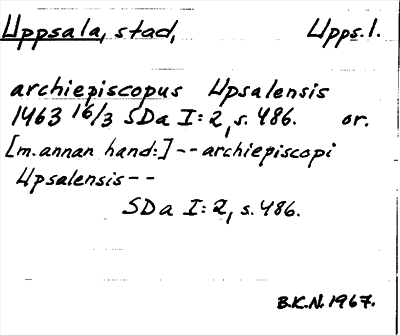 Uppsala, stad, Upps.l.
archiepiscopus Upsalensis
1463 16/3 SDa I:2, s. 486. or.
[m.annan hand:] -- archiepiscopi
Upsalensis --
SDa I:2, s. 486.
B.K.N. 1967.